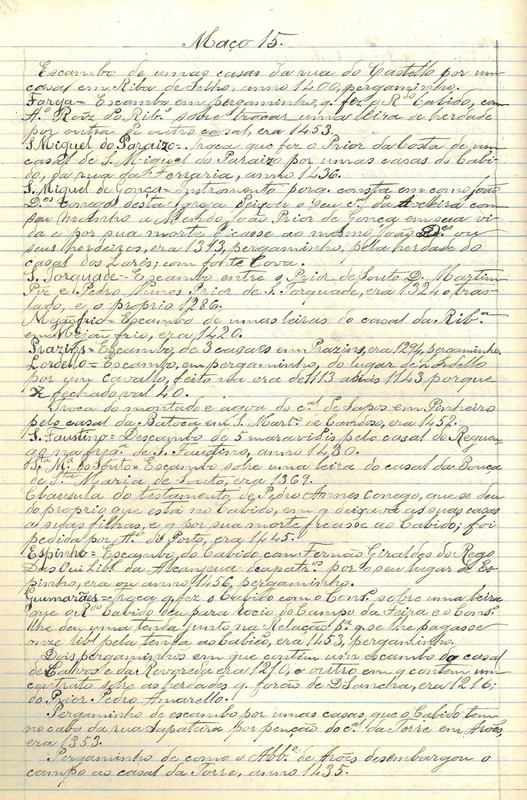 Maço 15.
Escambo de umas casas da rua do Castello por um
casal em Riba de Selho, anno 1400, pergaminho.
Farya = Escambo em pergaminho, q. fez o Rdo Cabido, com
Aº Roiz do Ribº sobre trocar uma leira de herdade
por outra de outro casal, era 1453.
S. Miguel do Paraizo = Troca que fez o Prior da Costa de um
casal de S. Miguel do Paraizo por umas casas do Cabi-
do, da rua da Ferraria, anno 1436.
S. Miguel de Gonça = Instromento porq. consta em como João
D.es conego desta Igreja a o seu c.al de com
seu moinho a João Prior de Gonça em sua vi-
da e por sua morte ficasse ao mesmo João D.es ou
seus herdeiros, era 1343, pergaminho, pela herdade do
casal dos Lares; com fonte Cova.
S. Torquade = Escambo entre o Prior de Souto D. Martim
Piz e Pedro Nunes Prior de S. Torquade, era 1324 o tras-
lado, e o proprio 1286.
Mezãofrio = Escambo de umas leiras do casal da Rib.ª
em Mezãofrio, era 1420.
Prazins = Escambo, de 3 casaes em Prazins, era 1294, pergaminho.
Lordello = Escambo, em pergaminho, do lugar de Lordello
por um cavallo, feito na era de 1113 aliás 1143 porque
X fechado val 40.
Troca do montado e agoa do c.al de Sapos em Pinheiro
pelo casal da Batoca em S. Mart.º de Candoso, era 1452.
S. Faustino = Descambo de 5 maravidis pelo casal do Reguen-
go na freg.ª de S. Faustino, anno 1480.
S.ta M.ª do Souto = Escambo sobre uma leira do casal da Bouça
de S.ta Maria de Souto, era 1369.
Clausula do testamento de Pedro Annes conego, que se deu
do proprio que está no Cabido, em q deixava as suas casas
a suas filhas, e q por sua morte ficasse ao Cabido; foi
pedida por Aº do Porto, era 1445.
Espinho = Escambo do Cabido com Fernão Giraldes do Rego
Das Oui Lib.as da Alcanjena pelo seu lugar de Es-
pinho, era ou anno 1456, pergaminho.
Guimarães = Troca q. fez o Cabido com o Cons.º sobre uma leira
que o Rdo Cabido deu para rocio do Campo da Feira e o Cons.º
lhe deu uma tenda junto na Relação p.ª q. se lhe pagasse
onze lib.as pela tenda ao Cabido, era 1453, pergaminho.
Dois pergaminhos em que contém um escambo do casal
de Calvos e da Revoreda era 1270, e outro em q contém um
contrato sobre as herdades q. forão de D Sancha, era 1216;
do Prior Pedro Amarello.
Pergaminho de escambo por umas casas, que o Cabido tem
no cabo da rua Sapateira por penção do c.al da Torre em Arões,
era 1353.
Pergaminho de como o Abb.e de Arões desembargou o
campo ao casal da Torre, anno 1435.